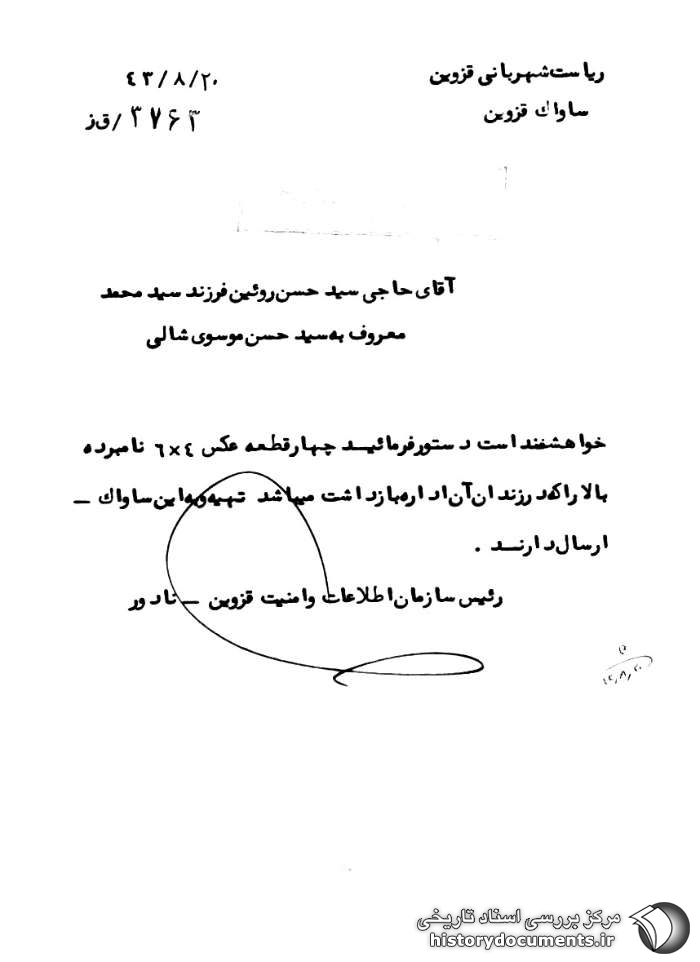 ریاست شهربانی قزوین
ساواک قزوین
۴۳/۸/۲۰
۳۷۶۳/قز
آقای حاجی سید حسن روئین فرزند سید محمد
معروف به سید حسن موسوی شالی
خواهشمند است دستور فرمائید چهار قطعه عکس ۴×۶ نامبرده
بالا را که در زندان آن اداره بازداشت میباشد تهیه و به این ساواک –
ارسال دارند .
رئیس سازمان اطلاعات و امنیت قزوین – نادور
مرکز بررسی اسناد تاریخی
historydocuments.ir